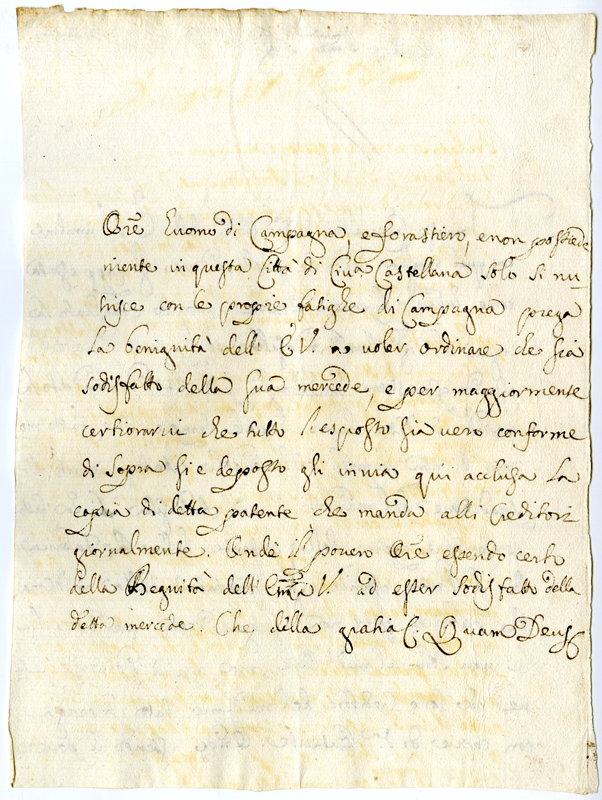 Ore huomo di Campagna, e forastiero, e non possiede
niente in questa Città di Civa Castellana solo si nu_
trisce con le proprie fatighe di Campagna prega
La benignità dell' E V. a voler ordinare che sia
sodisfatto della sua mercede, e per maggiormente
certiorarvi che tutto l'esposto sia vero conforme
di sopra si e deposto gli invia qui acclusa La
copia di detta patente che manda alli Creditori
giornalmente. Onde il povero Ore essendo certo
della Begnità dell' Emza V. ad esser sodisfatto della
detta mercede. Che della gratia &. Quam Deus &